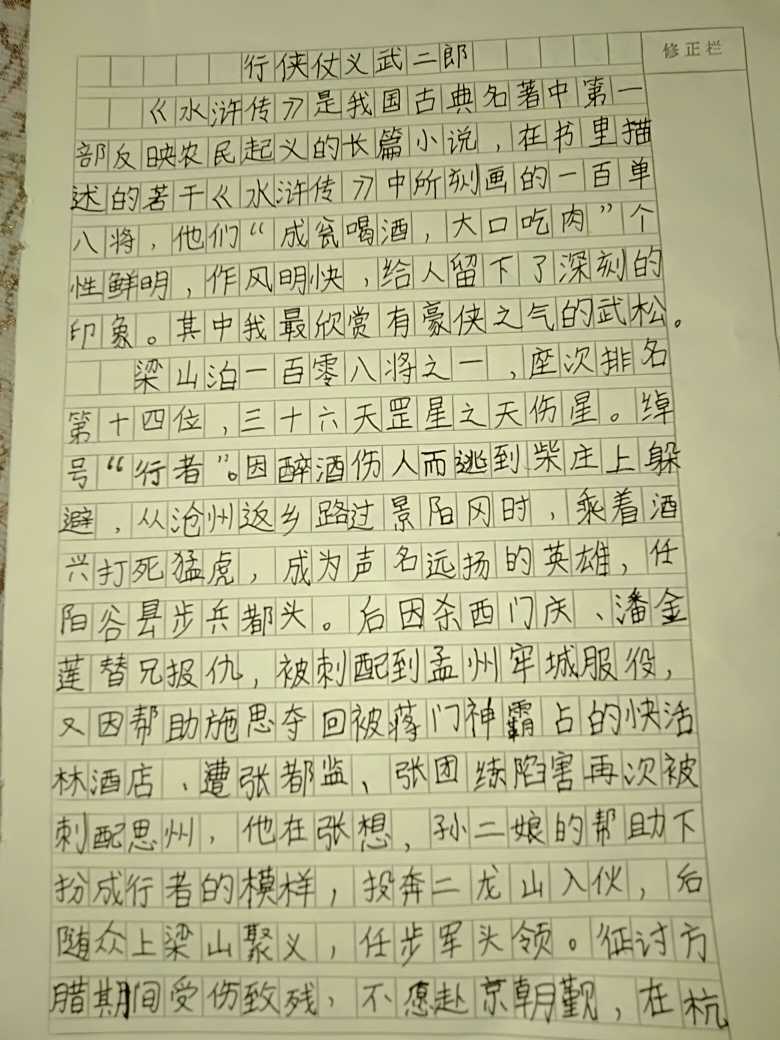 修正栏
行侠仗义武二郎
《水浒传》是我国古典名著中第一
部反映农民起义的长篇小说，在书里描
述的若干《水浒传》中所刻画的一百单
八将，他们“成瓮喝酒，大口吃肉”个
性鲜明，作风明快，给人留下了深刻的
印象。其中我最欣赏有豪侠之气的武松。
梁山泊一百零八将之一，座次排名
第十四位，三十六天罡星之天伤星。绰
号“行者”。因醉酒伤人而逃到柴庄上躲
避，从沧州返乡路过景阳冈时，乘着酒
兴打死猛虎，成为声名远扬的英雄，任
阳谷县步兵都头。后因杀西门庆、潘金
莲替兄报仇，被刺配到孟州牢城服役，
又因帮助施思夺回被蒋门神霸占的快活
林酒店、遭张都监、张团练陷害再次被
刺配思州，他在张想，孙二娘的帮助下
扮成行者的模样，投奔二龙山入伙，后
随众上梁山聚义，任步军头领。征讨方
腊期间受伤致残，不愿赴京朝觐，在杭